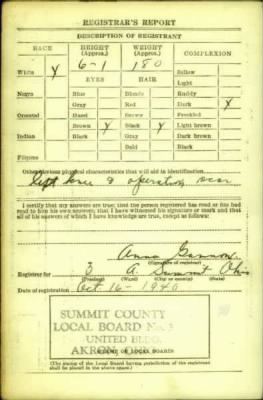 REGISTRAR'S REPORT
DESCRIPTION OF REGISTRANT
RACE HEIGHT (Approx.) WEIGHT (Approx.) COMPLEXION
White X 6-1 180 Sallow
Light
EYES HAIR
Negro Blue Blonde Ruddy
Gray Red Dark X
Oriental Hazel Brown Freckled
Brown X Black X Light brown
Indian Black Gray Dark brown
Bald Black
Filipino
Other obvious physical characteristics that will aid in identification
Left knee & operation scar
I certify that my answers are true; that the person registered has read or has had
read to him his own answers; that I have witnessed his signature or mark and that
all of his answers of which I have knowledge are true, except as follows:
Anna Gannon
(Signature of registrar)
Registrar for 3 A Summit Ohio
(Precinct) (Ward) (City or County) (State)
Date of registration Oct 16 - 1940
SUMMIT COUNTY
LOCAL BOARD No. 3
UNITED BLDG.
AKRON, OHIO
(STAMP OF LOCAL BOARD)
(The stamp of the Local Board having jurisdiction of the registrant
shall be placed in the above space.)